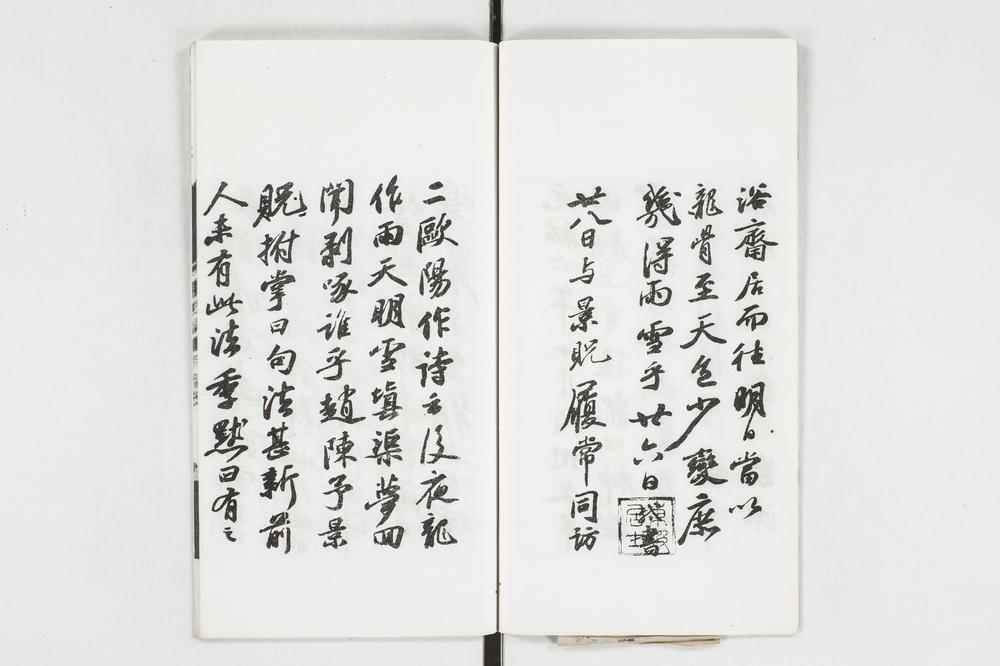 浴齋居而往明日當以
龍骨至天色少變庶
幾得雨雪乎廿六日
書
廿八日与景貺履常同訪
二歐陽作詩云後夜龍
作雨天明雪填渠夢回
聞剥啄誰乎趙陳予景
貺拊掌曰句法甚新前
人未有此法季默曰有之